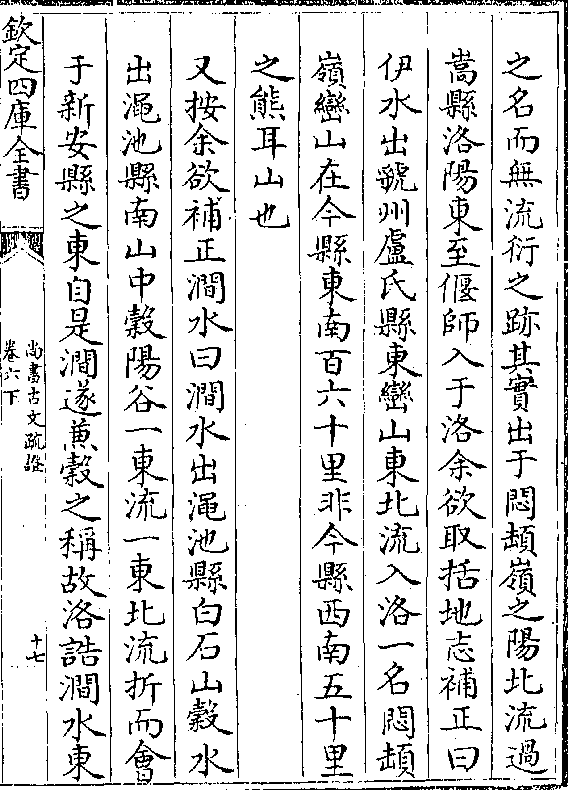 之名而無流衍之跡其實出于悶頓嶺之陽北流過
嵩縣洛陽東至偃師入于洛余欲取括地志補正曰
伊水出虢州盧氏縣東巒山東北流入洛一名悶頓
嶺巒山在今縣東南百六十里非今縣西南五十里
之熊耳山也
又按余欲補正澗水曰澗水出澠池縣白石山穀水
出澠池縣南山中穀陽谷一東流一東北流折而會
于新安縣之東自是澗遂蒹穀之稱故洛誥澗水東
欽定四庫全書
尚書古文疏證
卷六下
十七